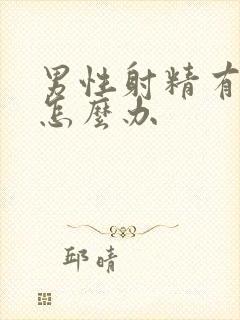 男性射精有
怎麼办
邱晴